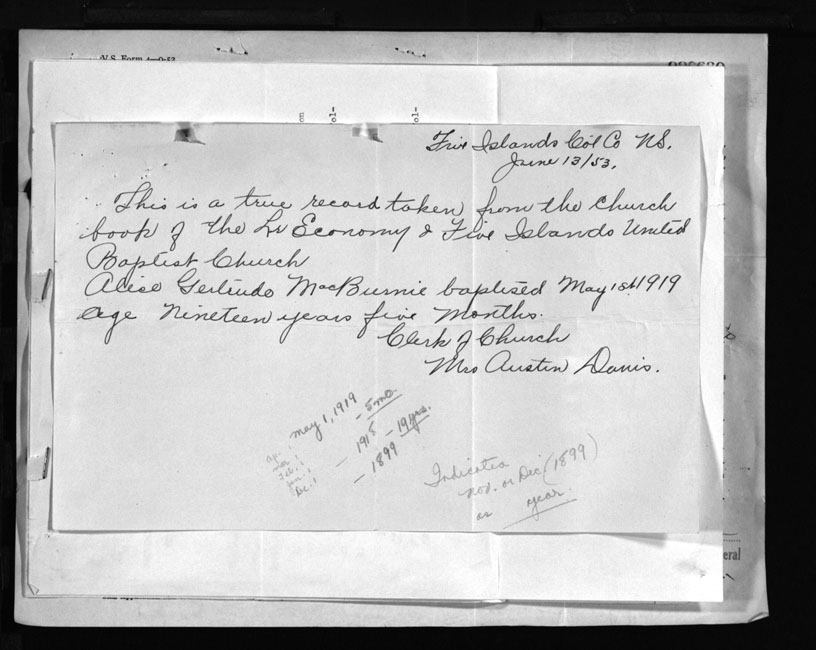 V.S. Form
on
ol-
ol-
Five Islands Col Co NS.
June 13/53.
This is a true record taken from the Church
book of the Lr Economy & Five Islands United
Baptist Church
Alice Gertrude MacBurnie baptised May 1st 1919
age Nineteen years five Months.
Clerk of Church
Mrs Austin Davis.
May 1, 1919
- 5 mo.
- 1918 - 19 yrs.
- 1899
ap. 1
mar. 1
Feb. 1
jan. 1
Dec. 1
Indicates
nov. or Dec. (1899)
as year.
eral